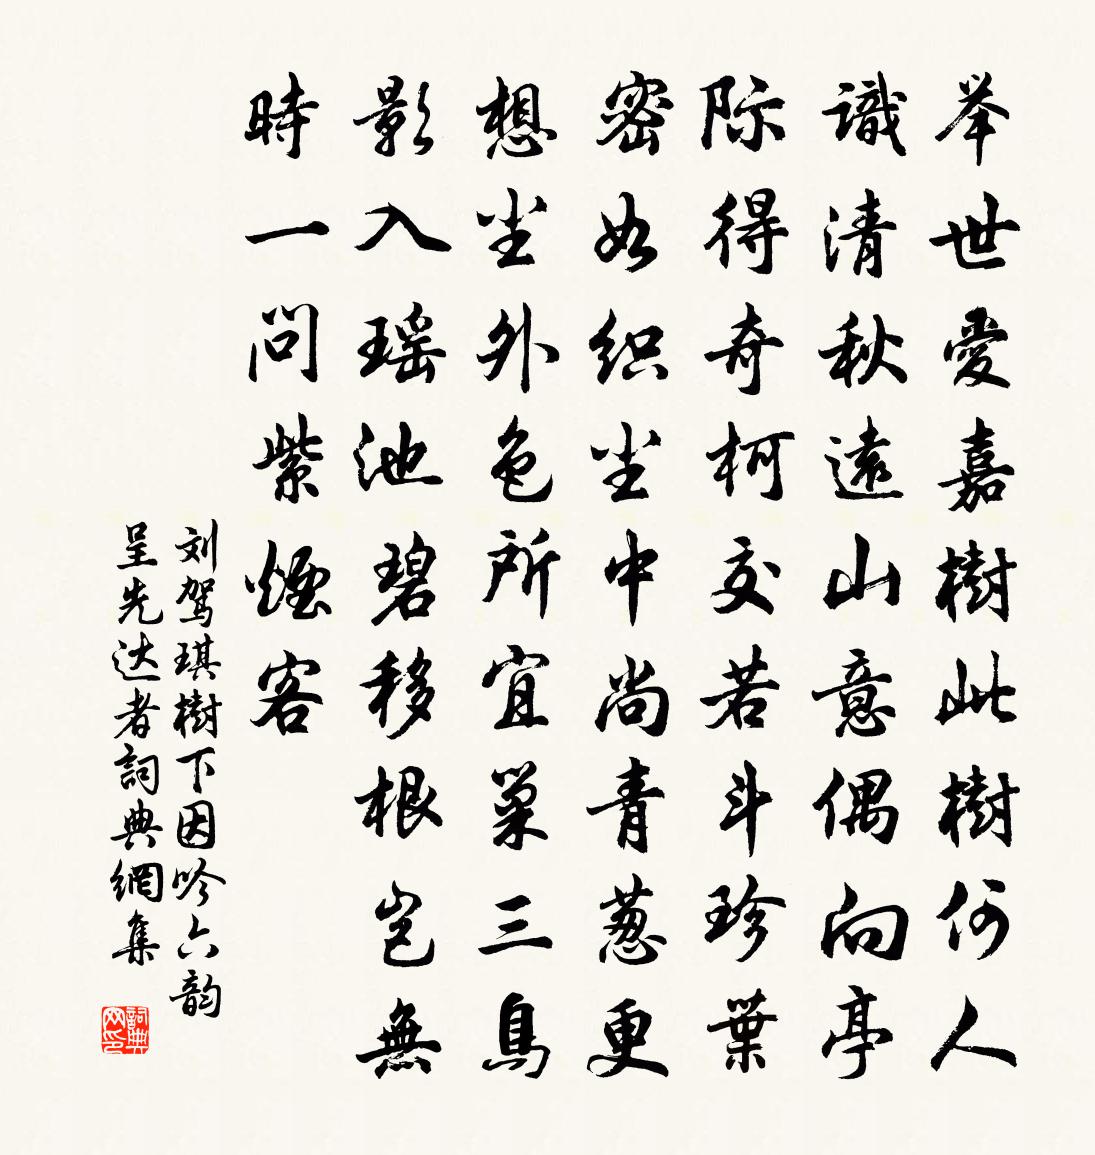 举世愛嘉樹此樹何人
識清秋遠山意偶向亭
际得奇柯交若斗珍葉
密如织尘中尚青葱更
想尘外色所宜巢三鳥
影入瑶池碧移根岂無
時一問紫煙客
刘驾琪樹下因吟六韵
呈先达者詞典網集
詞典网印